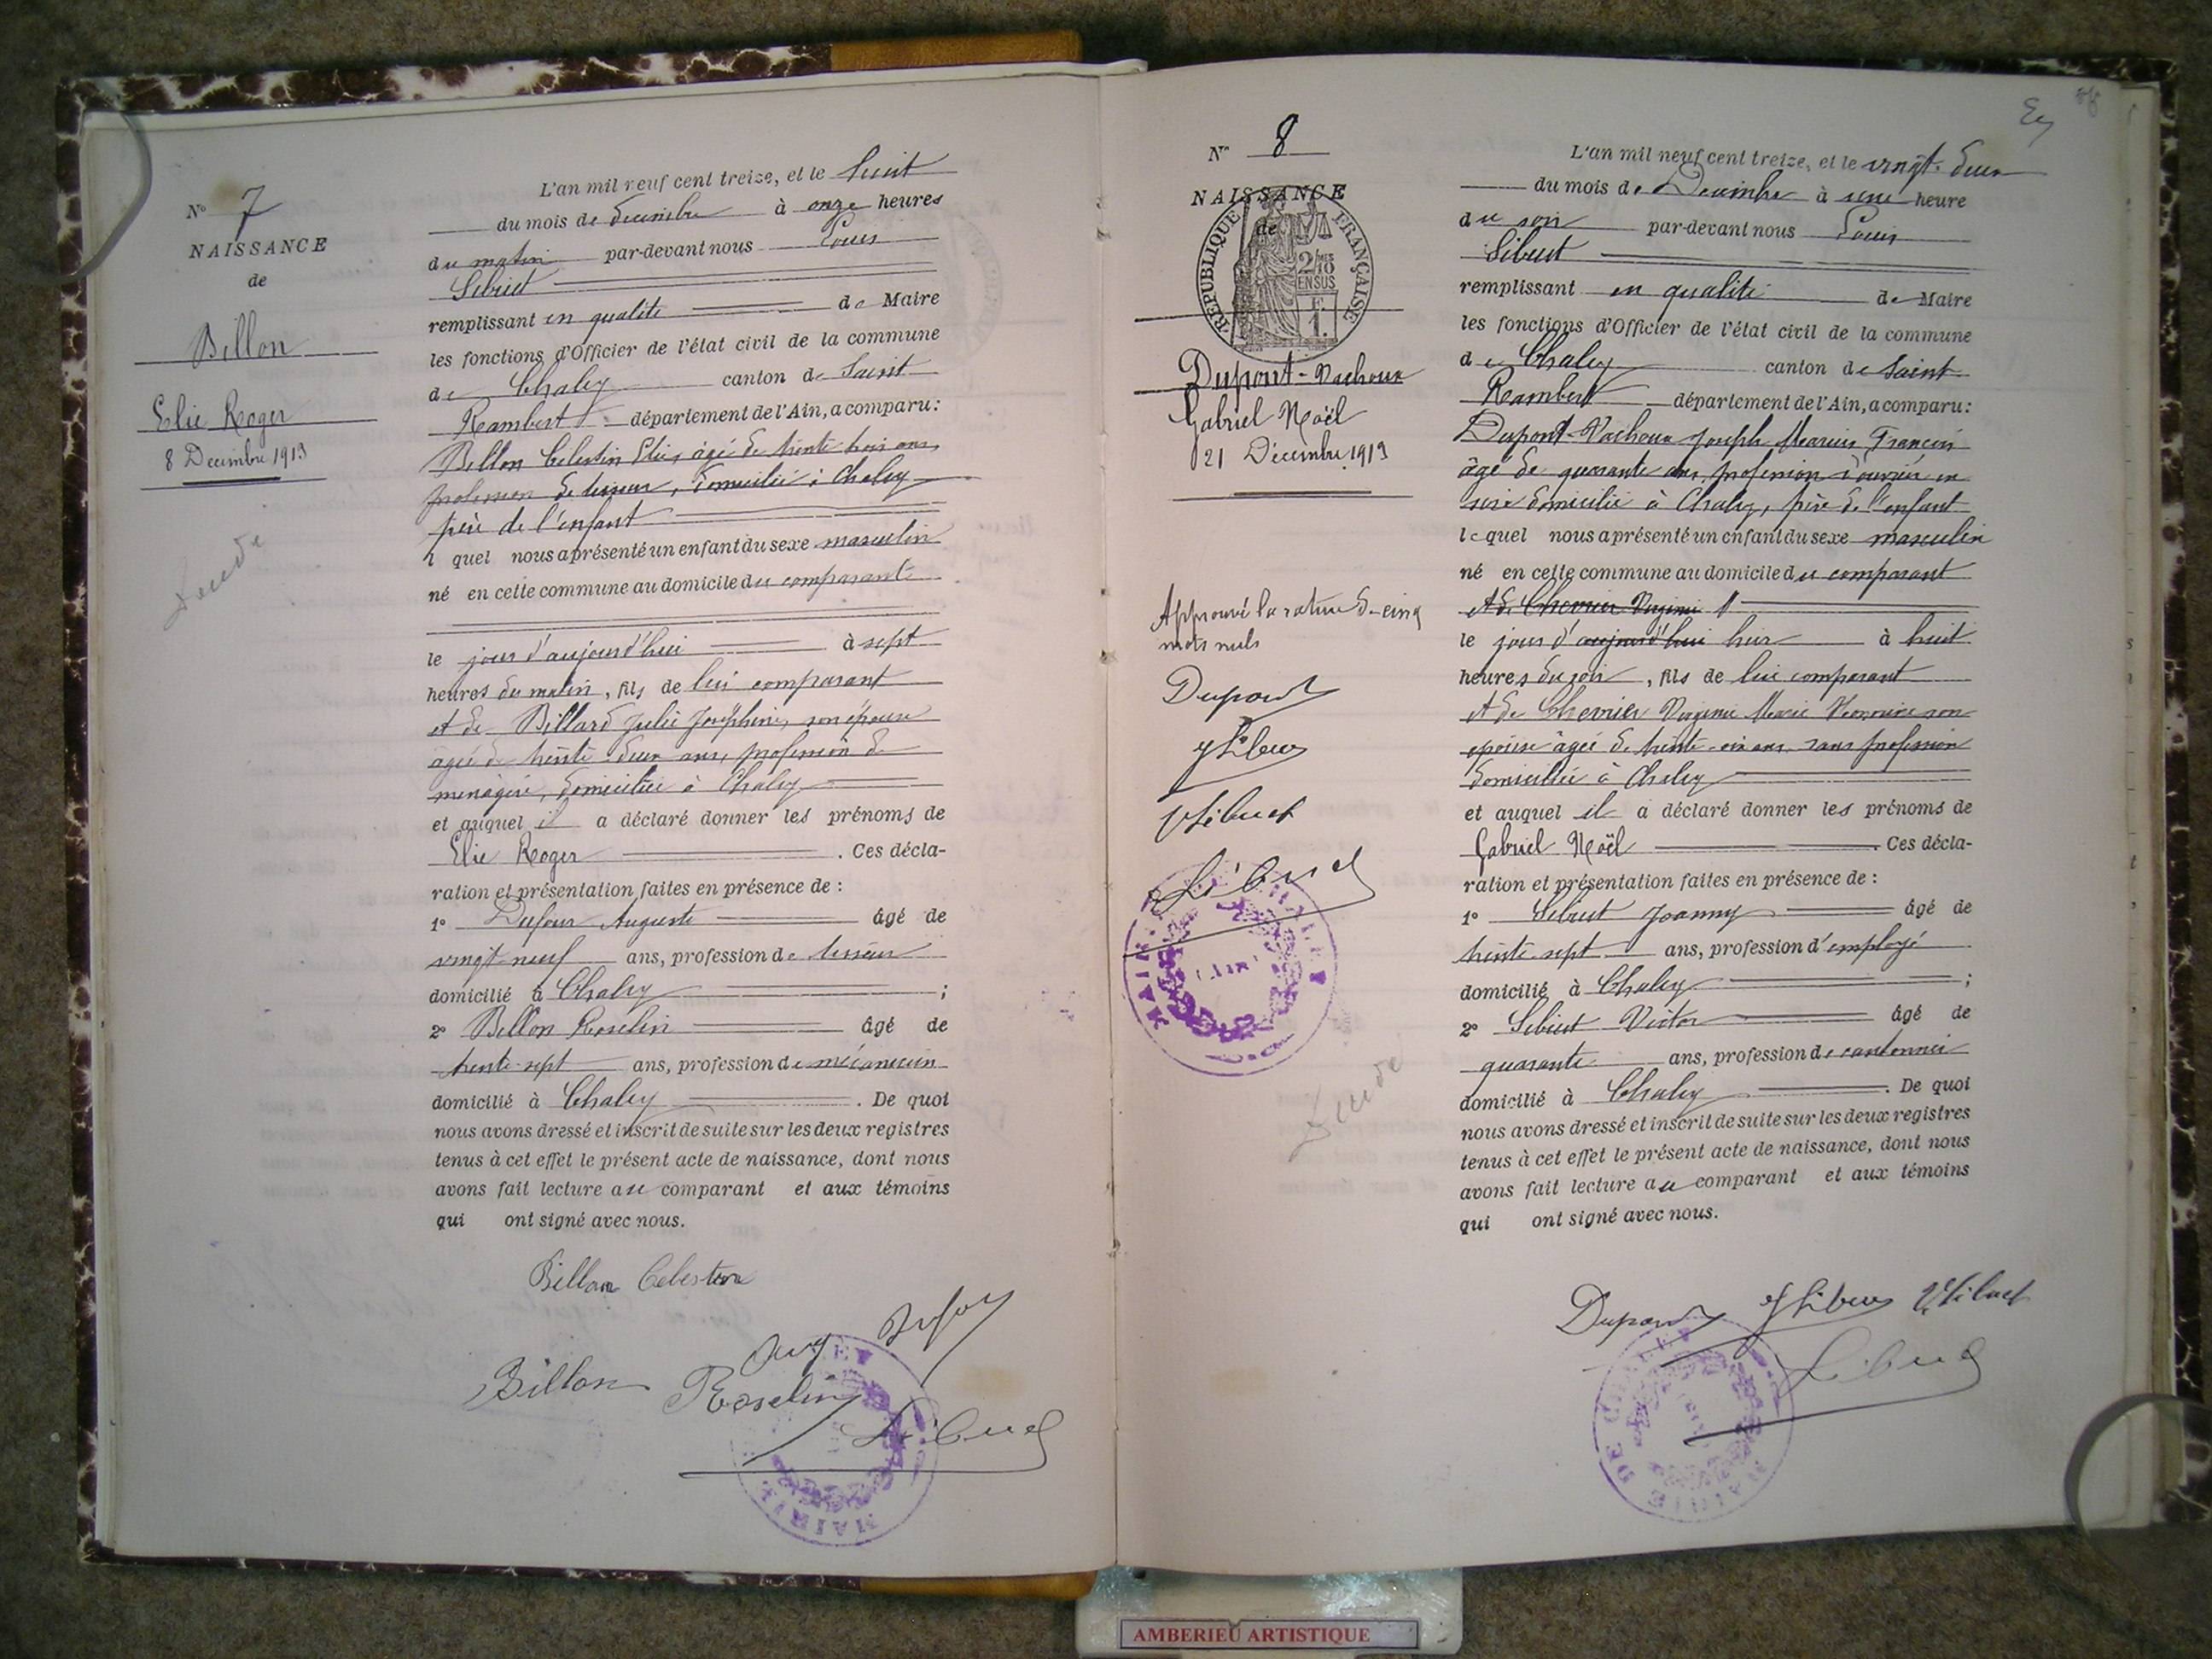 N° 7
NAISSANCE
de
Billon
Elie Roger
8 Décembre 1913
L'an mil neuf cent treize, et le huit
du mois de décembre à onze heures
du matin par-devant nous Louis
Sibuet
remplissant en qualité de Maire
les fonctions d'Officier de l'état civil de la commune
de Chaley canton de Saint
Rambert département de l'Ain, a comparu:
Billon Célestin Elie, âgé de trente trois ans,
profession de tisseur, domicilié à Chaley
père de l'enfant
l quel nous a présenté un enfant du sexe masculin
né en cette commune au domicile du comparant
le jour d'aujourd'hui à sept
heures du matin, fils de lui comparant
et de Billard Julie Joséphine, son épouse
agée de trente deux ans, profession de
ménagère, domiciliée à Chaley
et auquel il a déclaré donner les prénoms de
Elie Roger . Ces décla-
ration et présentation faites en présence de :
1° Dufour Auguste âgé de
vingt-neuf ans, profession de tisseur
domicilié à Chaley ;
2° Billon Roselin âgé de
trente-sept ans, profession de mécanicien
domicilié à Chaley . De quoi
nous avons dressé et inscrit de suite sur les deux registres
tenus à cet effet le présent acte de naissance, dont nous
avons fait lecture au comparant et aux témoins
qui ont signé avec nous.
Billon Celestin
Aug Dufour
Billon Roselin
Sibuet
MAIRIE
N° 8
NAISSANCE
de
RÉPUBLIQUE FRANÇAISE
2/10 MES
EN SUS
F.
1.
Dupont-Vachoux
Gabriel Noël
21 Décembre 1913
Approuvé la rature de cinq
mots nuls
Dupont
J Sibuet
V Sibuet
Sibuet
MAIRIE
(AIN)
L'an mil neuf cent treize, et le vingt-deux
du mois de Décembre à une heure
du soir par-devant nous Louis
Sibuet
remplissant en qualité de Maire
les fonctions d'Officier de l'état civil de la commune
de Chaley canton de Saint
Rambert département de l'Ain, a comparu:
Dupont-Vachoux Joseph Marius Francis
âgé de quarante ans, profession d'ouvrier en
soie domicilié à Chaley, père de l'enfant
lequel nous a présenté un enfant du sexe masculin
né en cette commune au domicile du comparant
et de Chevrier Virginie
le jour d'aujourd'hui hier à huit
heures du soir, fils de lui comparant
et de Chevrier Virginie Marie son
épouse âgée de trente-six ans sans profession
domiciliée à Chaley
et auquel il a déclaré donner les prénoms de
Gabriel Noël . Ces décla-
ration et présentation faites en présence de :
1° Sibuet Joanny âgé de
trente-sept ans, profession d'employé
domicilié à Chaley ;
2° Sibuet Victor âgé de
quarante ans, profession de cantonnier
domicilié à Chaley . De quoi
nous avons dressé et inscrit de suite sur les deux registres
tenus à cet effet le présent acte de naissance, dont nous
avons fait lecture au comparant et aux témoins
qui ont signé avec nous.
Dupont J Sibuet V Sibuet
Sibuet
MAIRIE DE CHALEY
AMBERIEU ARTISTIQUE